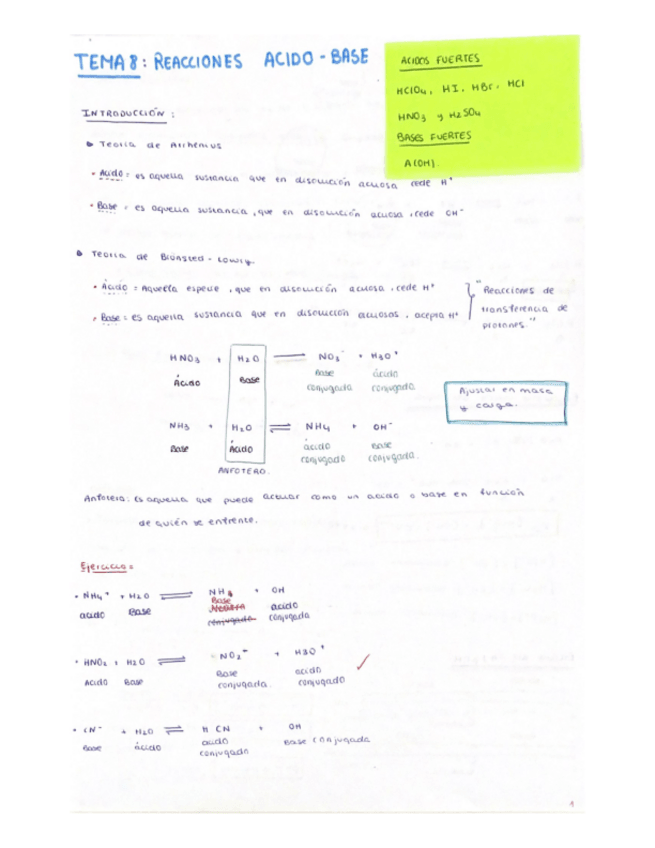 TEMA 8: REACCIONES ACIDO-BASE
ACIDOS FUERTES
HClO4, HI, HBr, HCl
HNO3 y H2SO4
BASES FUERTES
A(OH).
INTRODUCCIÓN:
Teoría de Arrhenius
• Acido: es aquella sustancia que en disolución acuosa cede H+
• Base: es aquella sustancia, que en disolución acuosa, cede OH-
Teoria de Brönsted-Lowry
• Ácido: Aquella especie, que en disolución acuosa, cede H+
• Base: es aquella sustancia que en disolución acuosas, acepta H+
"Reacciones de
transferencia de
protones."
HNO3 + H2O ⇌ NO3- + H3O+
Ácido Base Base conjugada ácido conjugada
NH3 + H2O ⇌ NH4 + OH-
Base Ácido ácido conjugada Base conjugada.
ANFOTERO.
Ajustar en masa
y carga.
Anfotera: Es aquella que puede actuar como un acido o base en función
de quién se enfrente.
Ejercicio:
• NH4+ + H2O ⇌ NH3 + OH
acido Base Base conjugada acido conjugada
• HNO2 + H2O ⇌ NO2- + H3O+
Acido Base Base conjugada. acido conjugado
• CN- + H2O ⇌ HCN + OH
Base ácido acido conjugado Base conjugada
1